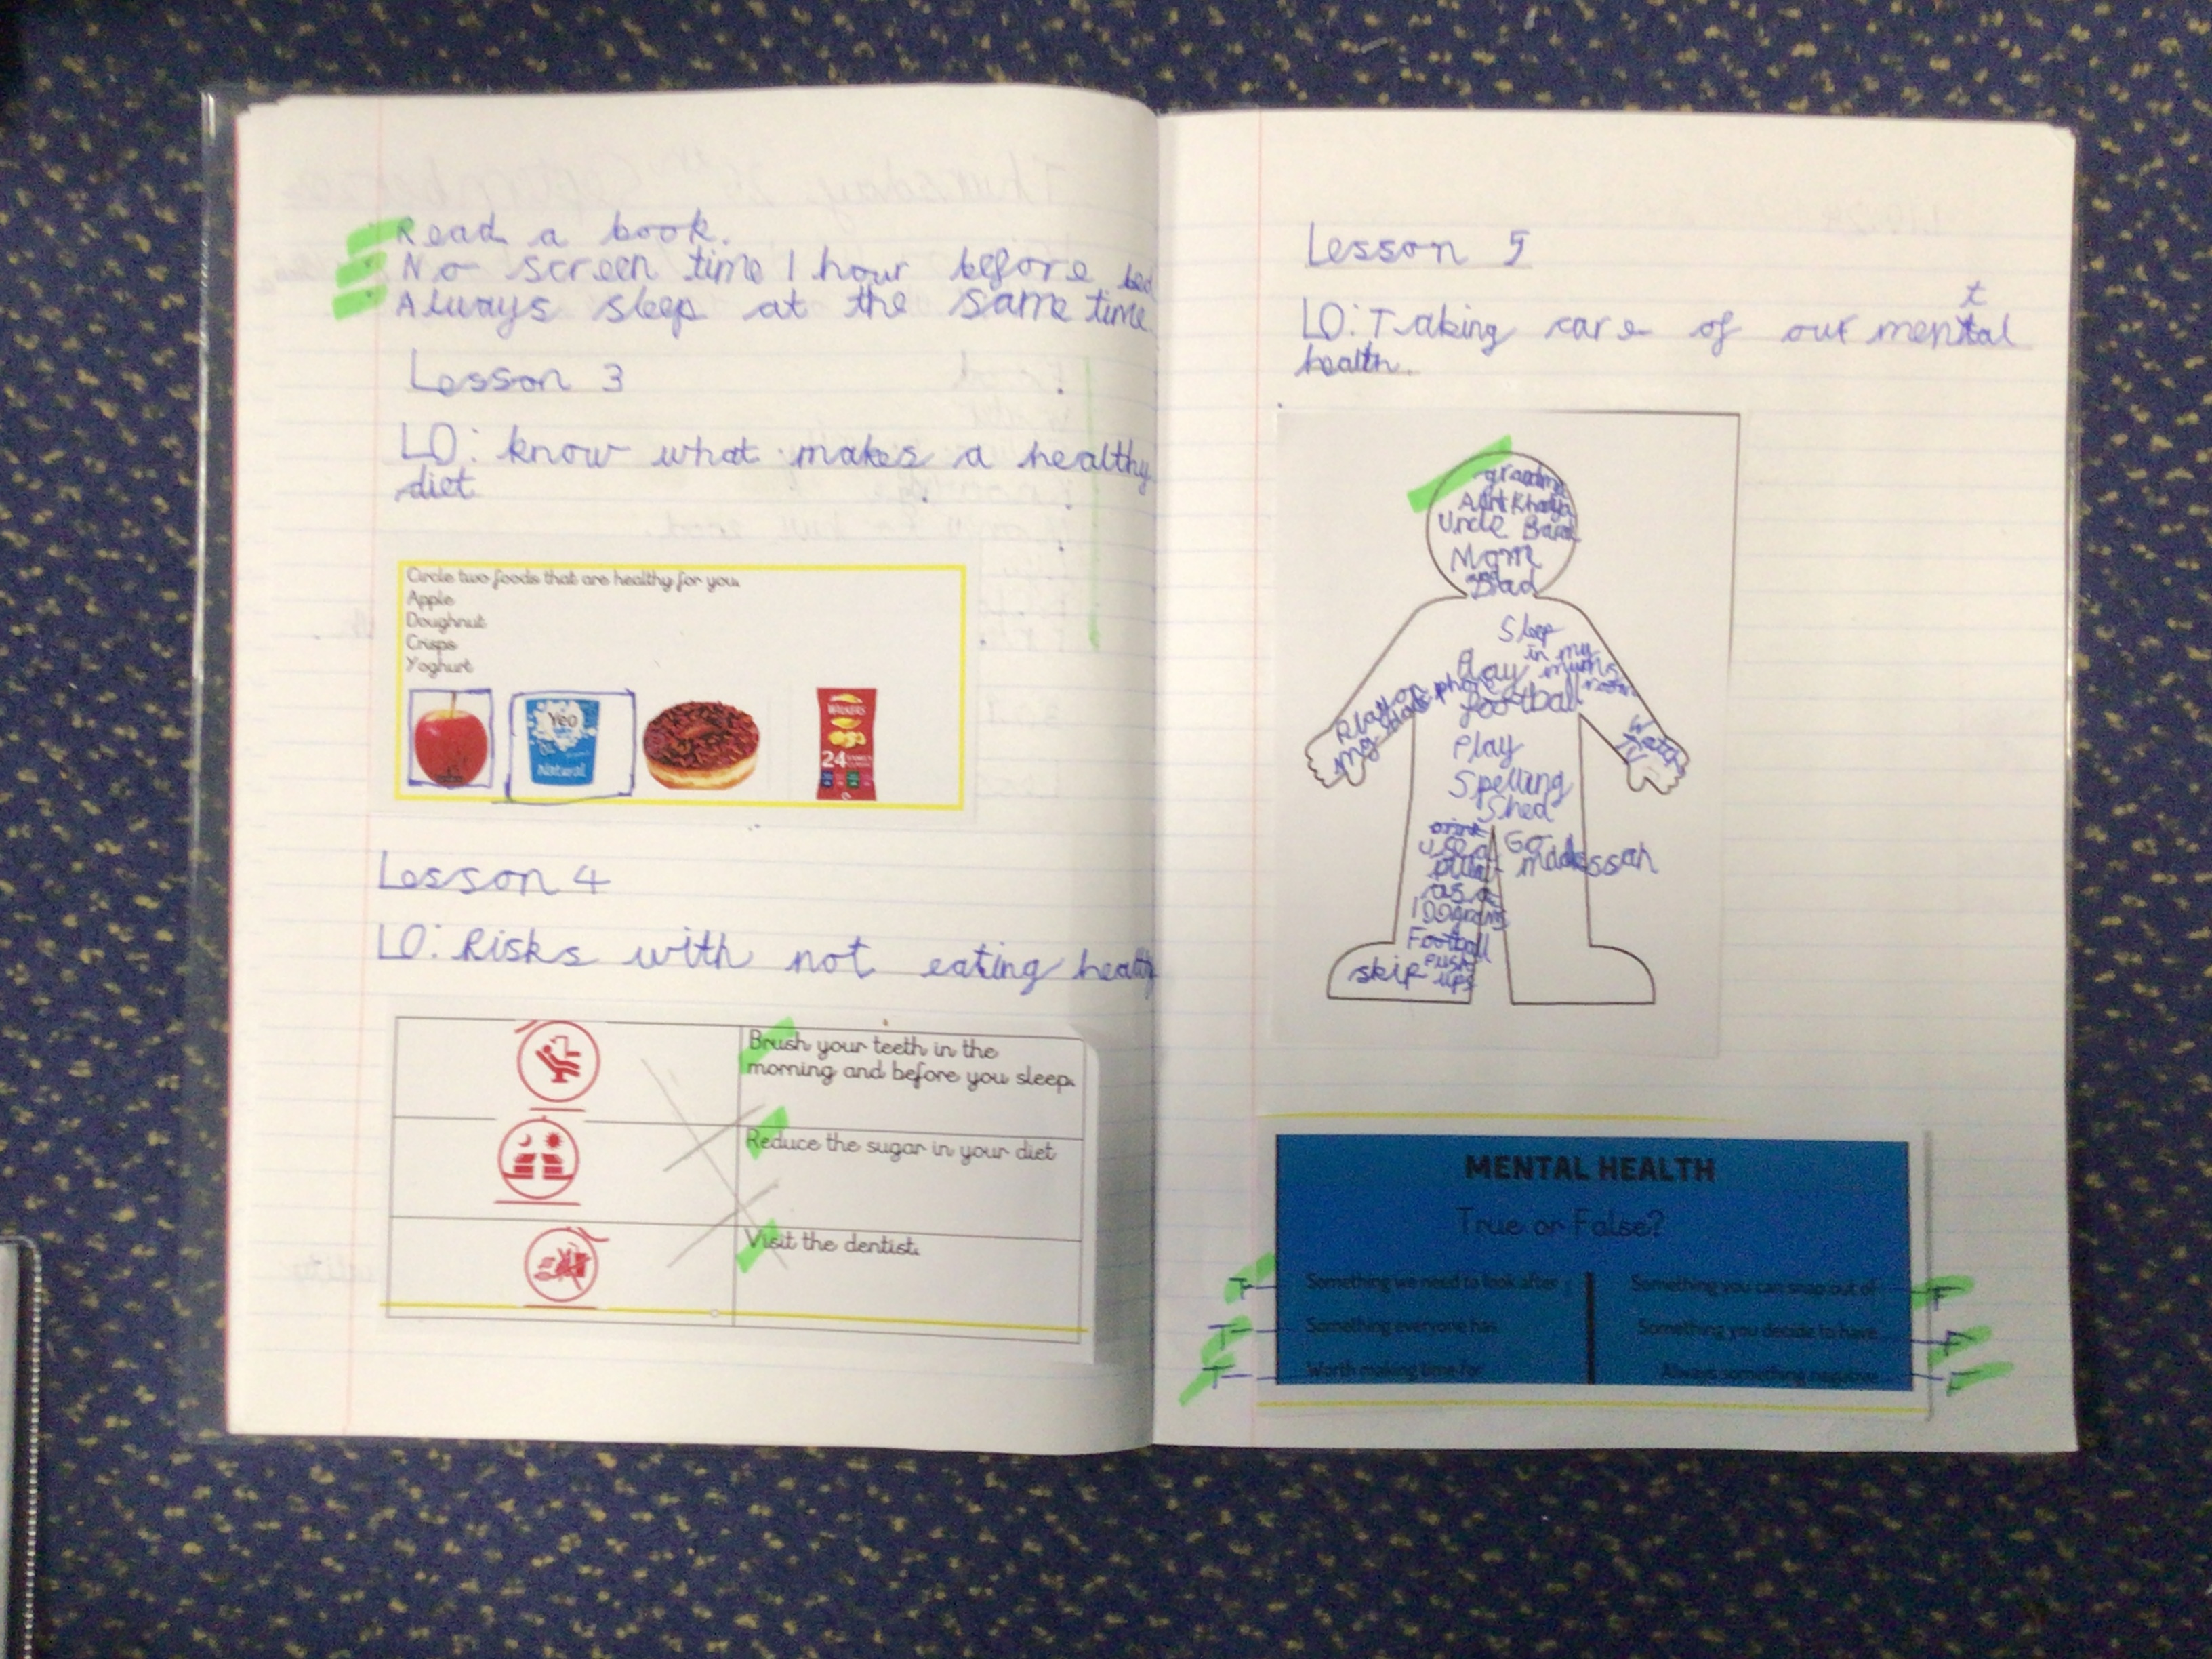 Read a book.
No screen time 1 hour before bed
Always sleep at the same time.
Lesson 3
LO: know what makes a healthy
diet
Circle two foods that are healthy for you.
Apple
Doughnut
Crisps
Yoghurt
Yeo
Natural
WALKERS
24
Lesson 4
LO: Risks with not eating healthy
Brush your teeth in the
morning and before you sleep.
Reduce the sugar in your diet
Visit the dentist.
Lesson 5
t
LO: Taking care of our mental
health.
grandma
Aunt
Uncle
Mom
and
Dad
Sleep
in my
mums
room
Play
football
Play on
my dads phone
Watch
TV
Play
Spelling
Shed
Go
madressah
as a
100grams
Football
push
ups
skip
MENTAL HEALTH
True or False?
T Something we need to look after
T Something everyone has
T Worth making time for
Something you can snap out of F
Something you decide to have F
Always something negative F